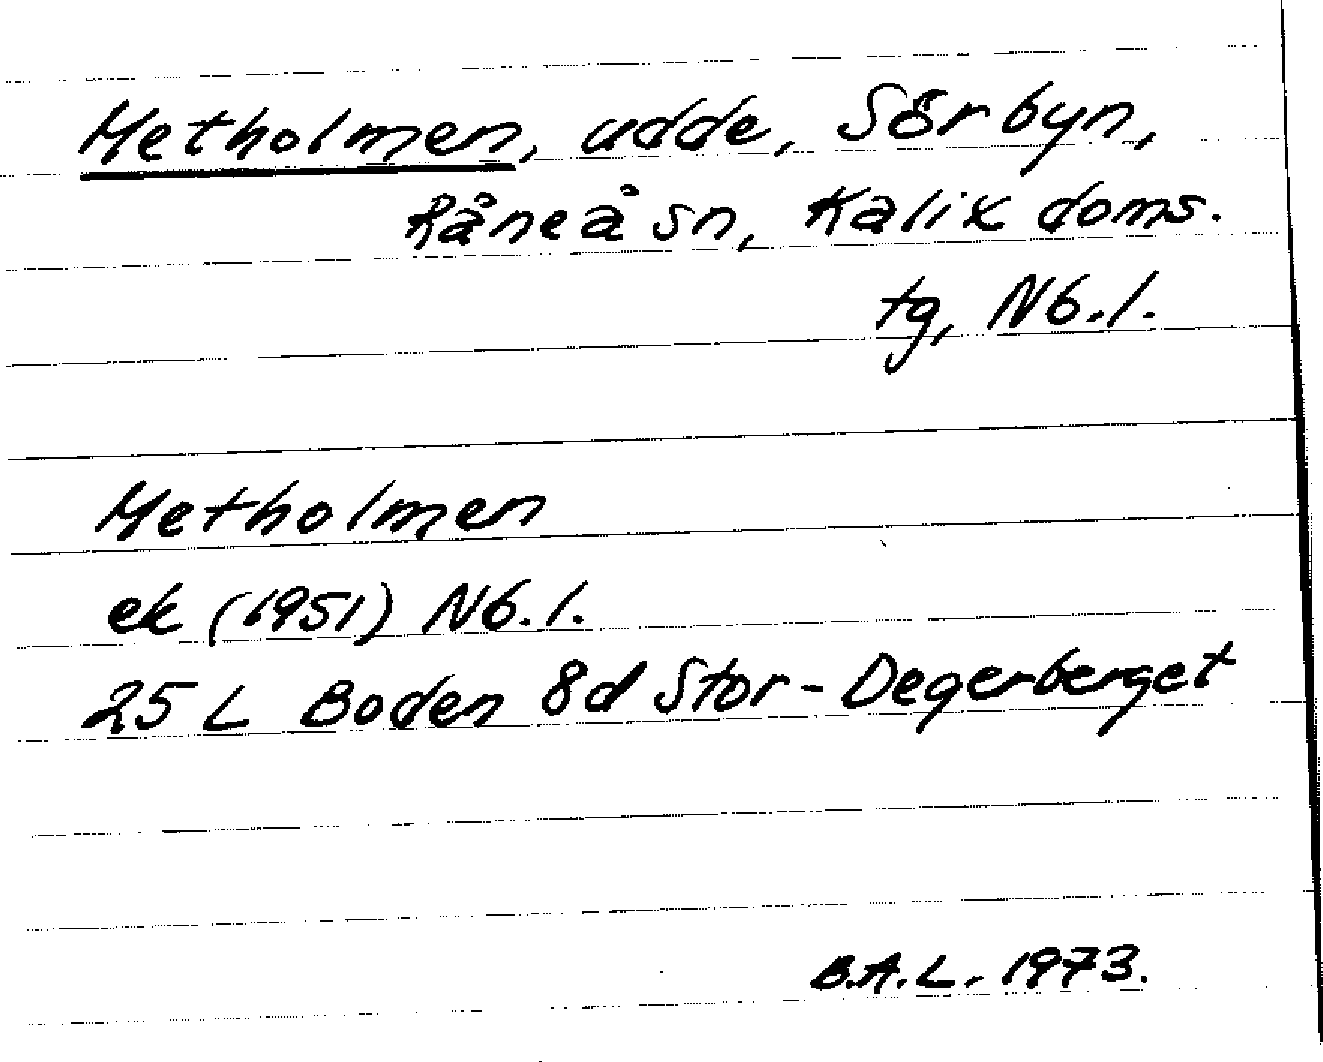 Metholmen, udde, Sörbyn,
Råneå sn, Kalix doms.
tg, Nb.l.
Metholmen
ek (1951) Nb.l.
25 L Boden 8d Stor-Degerberget
B.A.L. 1973.